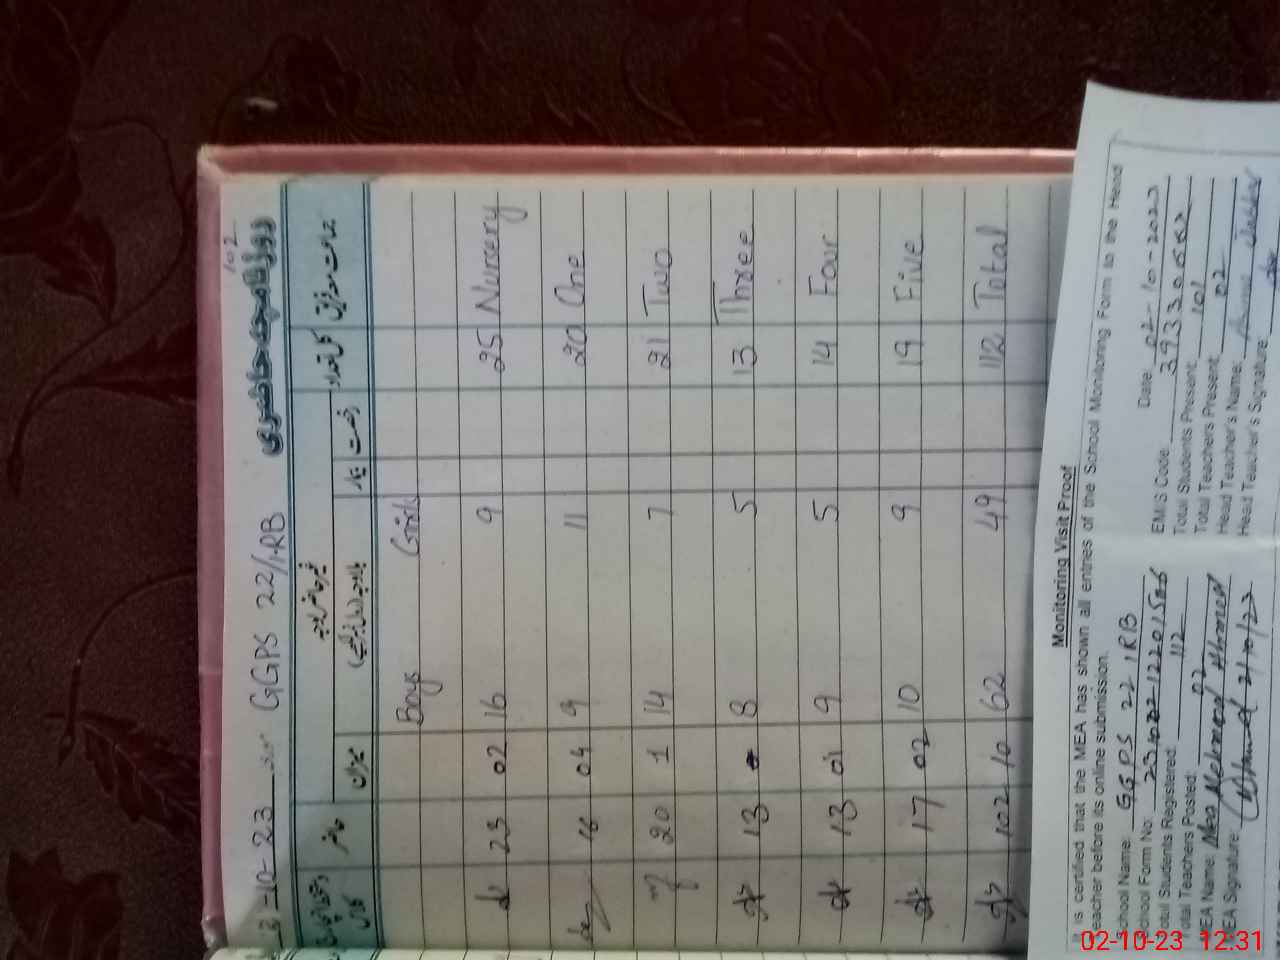 102
2-10-23 GGPS 22/1.RB روزنامچہ حاضری
حاضر میزان بلاوجہ بیمار رخصت کل تعداد
Boys Girls
23 02 16 9 25 Nursery
16 04 9 11 20 One
20 1 14 7 21 Two
13 8 5 13 Three
13 01 9 5 14 Four
17 02 10 9 19 Five
102 10 62 49 112 Total
Monitoring Visit Proof
It is certified that the MEA has shown all entries of the School Monitoring Form to the Head
Teacher before its online submission.
Date 02-10-2023
School Name: GGPS 22 1RB EMIS Code
School Form No. Total Students Present: 101
Total Students Registered: 112 Total Teachers Present: 02
Total Teachers Posted: 02 Head Teacher's Name:
MEA Name: Mehmood Ahmed Head Teacher's Signature
MEA Signature: 2/10/23
02-10-23 12:31